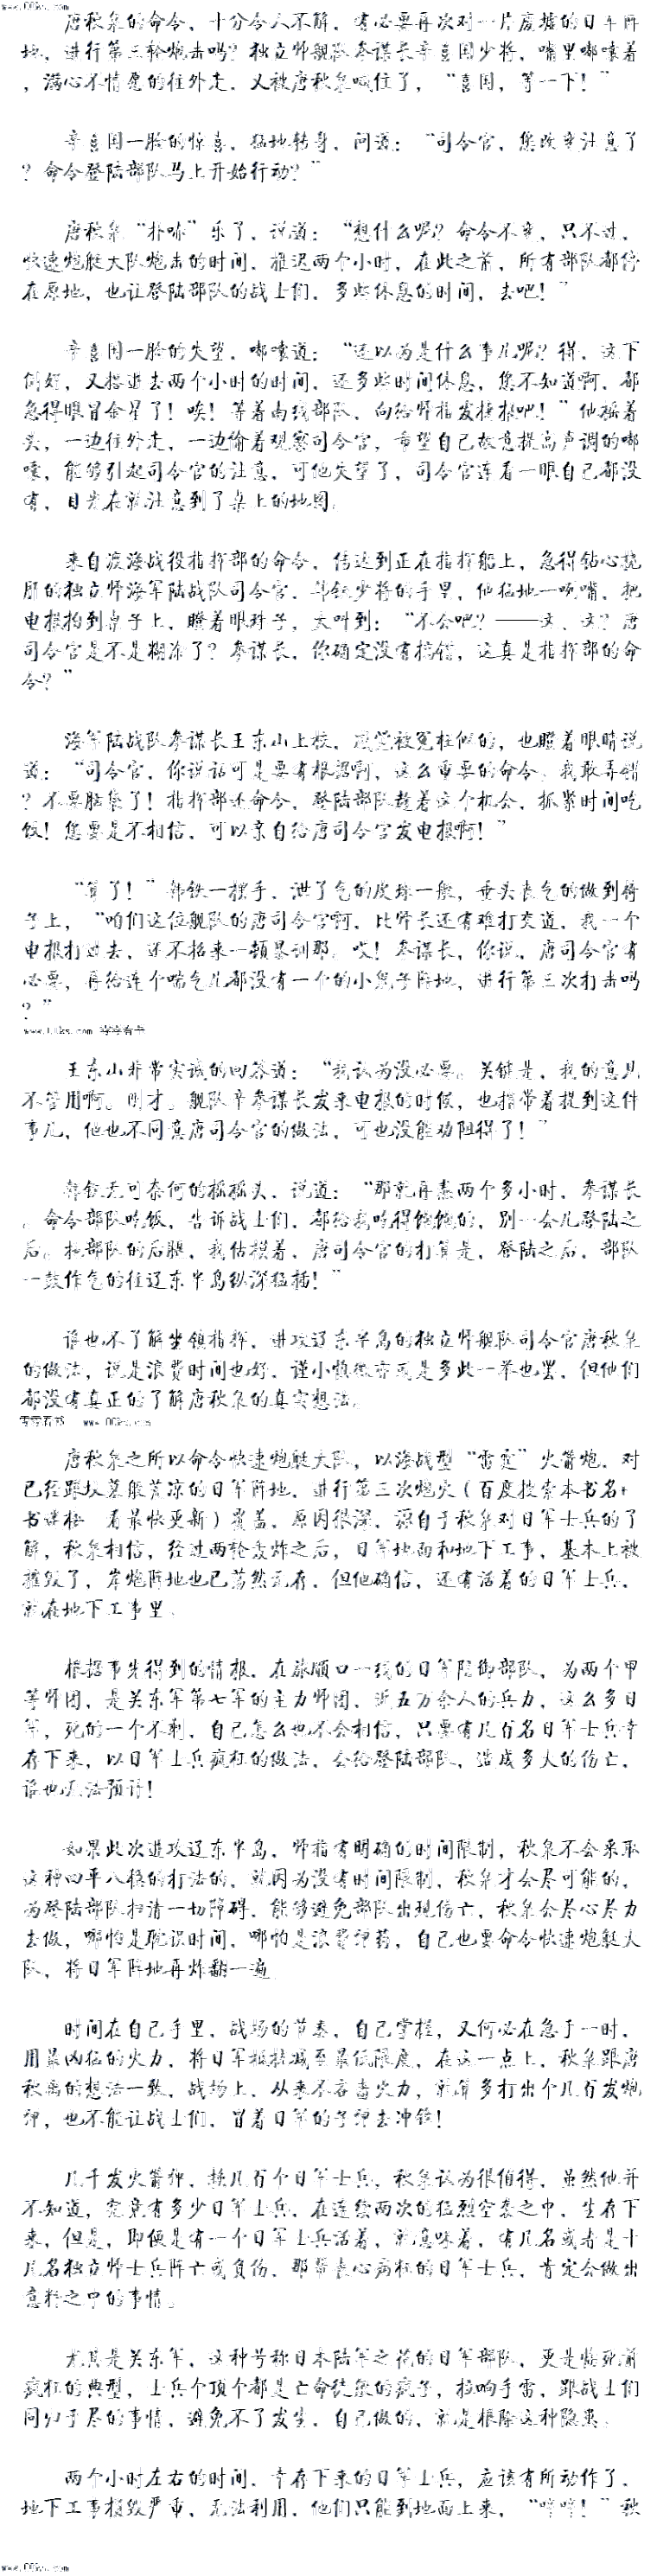 www.00ks.com
唐秋泉的命令，十分令人不解，有必要再次对一片废墟的日军阵
地，进行第三轮炮击吗？独立师舰队参谋长辛喜国少将，嘴里嘟囔着
，满心不情愿的往外走，又被唐秋泉喊住了，“喜国，等一下！”
辛喜国一脸的惊喜，猛地转身，问道：“司令官，您改变注意了
？命令登陆部队马上开始行动？”
唐秋泉“扑哧”乐了，说道：“想什么呢？命令不变，只不过，
快速炮艇大队炮击的时间，推迟两个小时，在此之前，所有部队都停
在原地，也让登陆部队的战士们，多些休息的时间，去吧！”
辛喜国一脸的失望，嘟囔道：“还以为是什么事儿呢？得，这下
倒好，又搭进去两个小时的时间，还多些时间休息，您不知道啊，都
急得眼冒金星了！唉！等着南线部队，向给师指发捷报吧！”他摇着
头，一边往外走，一边偷着观察司令官，希望自己故意提高声调的嘟
囔，能够引起司令官的注意，可他失望了，司令官连看一眼自己都没
有，目光在就注意到了桌上的地图。
来自渡海战役指挥部的命令，传达到正在指挥船上，急得钻心挠
肝的独立师海军陆战队司令官，韩铁少将的手里，他猛地一咧嘴，把
电报拍到桌子上，瞪着眼珠子，大叫到：“不会吧？——这、这？唐
司令官是不是糊涂了？参谋长，你确定没有搞错，这真是指挥部的命
令？”
海军陆战队参谋长王东山上校，感觉被冤枉似的，也瞪着眼睛说
道：“司令官，你说话可是要有根据啊，这么重要的命令，我敢弄错
？不要脑袋了！指挥部还命令，登陆部队趁着这个机会，抓紧时间吃
饭！您要是不相信，可以亲自给唐司令官发电报啊！”
“算了！”韩铁一摆手，泄了气的皮球一般，垂头丧气的做到椅
子上，“咱们这位舰队的唐司令官啊，比师长还有难打交道，我一个
电报打过去，还不招来一顿暴训那。哎！参谋长，你说，唐司令官有
必要，再给连个喘气儿都没有一个的小鬼子阵地，进行第三次打击吗
？”
www.00ks.com 零零看书
王东山非常实诚的回答道：“我认为没必要。关键是，我的意见
不管用啊。刚才，舰队辛参谋长发来电报的时候，也捎带着提到这件
事儿，他也不同意唐司令官的做法，可也没能劝阻得了！”
韩铁无可奈何的摇摇头，说道：“那就再熬两个多小时，参谋长
。命令部队吃饭，告诉战士们，都给我吃得饱饱的，别一会儿登陆之
后。拖部队的后腿，我估摸着，唐司令官的打算是，登陆之后，部队
一鼓作气的往辽东半岛纵深猛插！”
谁也不了解坐镇指挥，进攻辽东半岛的独立师舰队司令官唐秋泉
的做法，说是浪费时间也好，谨小慎微亦或是多此一举也罢，但他们
都没有真正的了解唐秋泉的真实想法。
零零看书 www.00ks.com
唐秋泉之所以命令快速炮艇大队，以海战型“雷霆”火箭炮，对
已经跟坟墓般荒凉的日军阵地，进行第三次炮火（百度搜索本书名+
书迷楼 看最快更新）覆盖，原因很深，源自于秋泉对日军士兵的了
解，秋泉相信，经过两轮轰炸之后，日军地面和地下工事，基本上被
摧毁了，岸炮阵地也已荡然无存，但他确信，还有活着的日军士兵，
就在地下工事里。
根据事先得到的情报，在旅顺口一线的日军防御部队，为两个甲
等师团，是关东军第七军的主力师团，近五万余人的兵力，这么多日
军，死的一个不剩，自己怎么也不会相信，只要有几百名日军士兵幸
存下来，以日军士兵疯狂的做法，会给登陆部队，造成多大的伤亡，
谁也无法预计！
如果此次进攻辽东半岛，师指有明确的时间限制，秋泉不会采取
这种四平八稳的打法的，就因为没有时间限制，秋泉才会尽可能的，
为登陆部队扫清一切障碍，能够避免部队出现伤亡，秋泉会尽心尽力
去做，哪怕是耽误时间，哪怕是浪费弹药，自己也要命令快速炮艇大
队，将日军阵地再炸翻一遍。
时间在自己手里，战场的节奏，自己掌握，又何必在急于一时，
用最凶猛的火力，将日军抵抗减至最低限度，在这一点上，秋泉跟唐
秋离的想法一致，战场上，从来不吝啬火力，就算多打出个几百发炮
弹，也不能让战士们，冒着日军的子弹去冲锋！
几千发火箭弹，换几百个日军士兵，秋泉认为很值得，虽然他并
不知道，究竟有多少日军士兵，在连续两次的猛烈空袭之中，生存下
来，但是，即便是有一个日军士兵活着，就意味着，有几名或者是十
几名独立师士兵阵亡或负伤，那帮丧心病狂的日军士兵，肯定会做出
意料之中的事情。
尤其是关东军，这种号称日本陆军之花的日军部队，更是临死前
疯狂的典型，士兵个顶个都是亡命徒般的疯子，拉响手雷，跟战士们
同归于尽的事情，避免不了发生，自己做的，就是根除这种隐患。
两个小时左右的时间，幸存下来的日军士兵，应该有所动作了，
地下工事损毁严重，无法利用，他们只能到地面上来，“哼哼！”秋
www.00ks.com